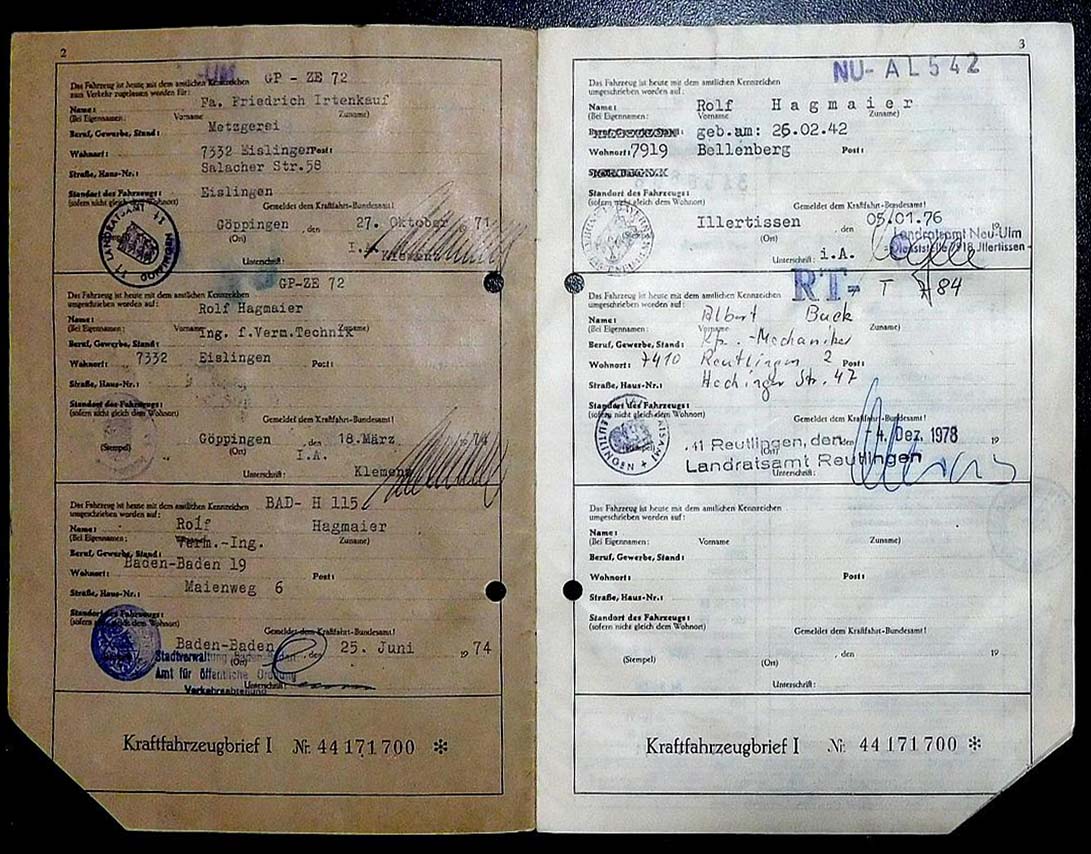 2
Das Fahrzeug ist heute mit dem amtlichen Kennzeichen GP - ZE 72
zum Verkehr zugelassen worden für:
Fa. Friedrich Irtenkauf
Name:
(Bei Eigennamen: Vorname Zuname)
Metzgerei
Beruf, Gewerbe, Stand:
Wohnort: 7332 Eislingen Post:
Straße, Haus-Nr.: Salacher Str.58
Standort des Fahrzeugs: Eislingen
(sofern nicht gleich dem Wohnort)
Gemeldet dem Kraftfahrt-Bundesamt!
Göppingen, den 27. Oktober 71
(Ort)
Unterschrift:
Das Fahrzeug ist heute mit dem amtlichen Kennzeichen GP-ZE 72
umgeschrieben worden auf:
Name: Rolf Hagmaier
(Bei Eigennamen: Vorname Zuname)
Beruf, Gewerbe, Stand: Ing. f.Verm.Technik
Wohnort: 7332 Eislingen Post:
Straße, Haus-Nr.:
Standort des Fahrzeugs:
(sofern nicht gleich dem Wohnort)
Gemeldet dem Kraftfahrt-Bundesamt!
(Stempel) Göppingen, den 18.März
(Ort) I.A.
Unterschrift: Klemens
Das Fahrzeug ist heute mit dem amtlichen Kennzeichen BAD- H 115
umgeschrieben worden auf:
Name: Rolf Hagmaier
(Bei Eigennamen: Vorname Zuname)
Verm.-Ing.
Beruf, Gewerbe, Stand:
Wohnort: Baden-Baden 19 Post:
Straße, Haus-Nr.: Maienweg 6
Standort des Fahrzeugs:
(sofern nicht gleich dem Wohnort)
Gemeldet dem Kraftfahrt-Bundesamt!
Baden-Baden, den 25. Juni 19 74
Stadtverwaltung Baden-Baden
(Ort)
Amt für öffentliche Ordnung
Unterschrift:
Verkehrsabteilung
Kraftfahrzeugbrief I Nr. 44171700 *
3
NU- AL542
Das Fahrzeug ist heute mit dem amtlichen Kennzeichen
umgeschrieben worden auf:
Name: Rolf Hagmaier
(Bei Eigennamen: Vorname Zuname)
geb.am: 26.02.42
Wohnort: 7919 Bellenberg Post:
Standort des Fahrzeugs:
(sofern nicht gleich dem Wohnort)
Gemeldet dem Kraftfahrt-Bundesamt!
Illertissen, den 05.01.76 19
(Ort)
Landratsamt Neu-Ulm
Dienststelle 7918 Jllertissen
Unterschrift: i.A.
Das Fahrzeug ist heute mit dem amtlichen Kennzeichen RT- T 784
umgeschrieben worden auf:
Name: Albert Buck
(Bei Eigennamen: Vorname Zuname)
Beruf, Gewerbe, Stand: -Mechaniker
Wohnort: 7410 Reutlingen 2 Post:
Straße, Haus-Nr.: Hechinger Str. 47
Standort des Fahrzeugs:
(sofern nicht gleich dem Wohnort)
Gemeldet dem Kraftfahrt-Bundesamt!
41 Reutlingen, den - 4. Dez. 1978 19
(Ort)
Landratsamt Reutlingen
Unterschrift:
Das Fahrzeug ist heute mit dem amtlichen Kennzeichen
umgeschrieben worden auf:
Name:
(Bei Eigennamen: Vorname Zuname)
Beruf, Gewerbe, Stand:
Wohnort: Post:
Straße, Haus-Nr.:
Standort des Fahrzeugs:
(sofern nicht gleich dem Wohnort)
Gemeldet dem Kraftfahrt-Bundesamt!
(Stempel) , den 19
(Ort)
Unterschrift:
Kraftfahrzeugbrief I Nr. 44171700 *